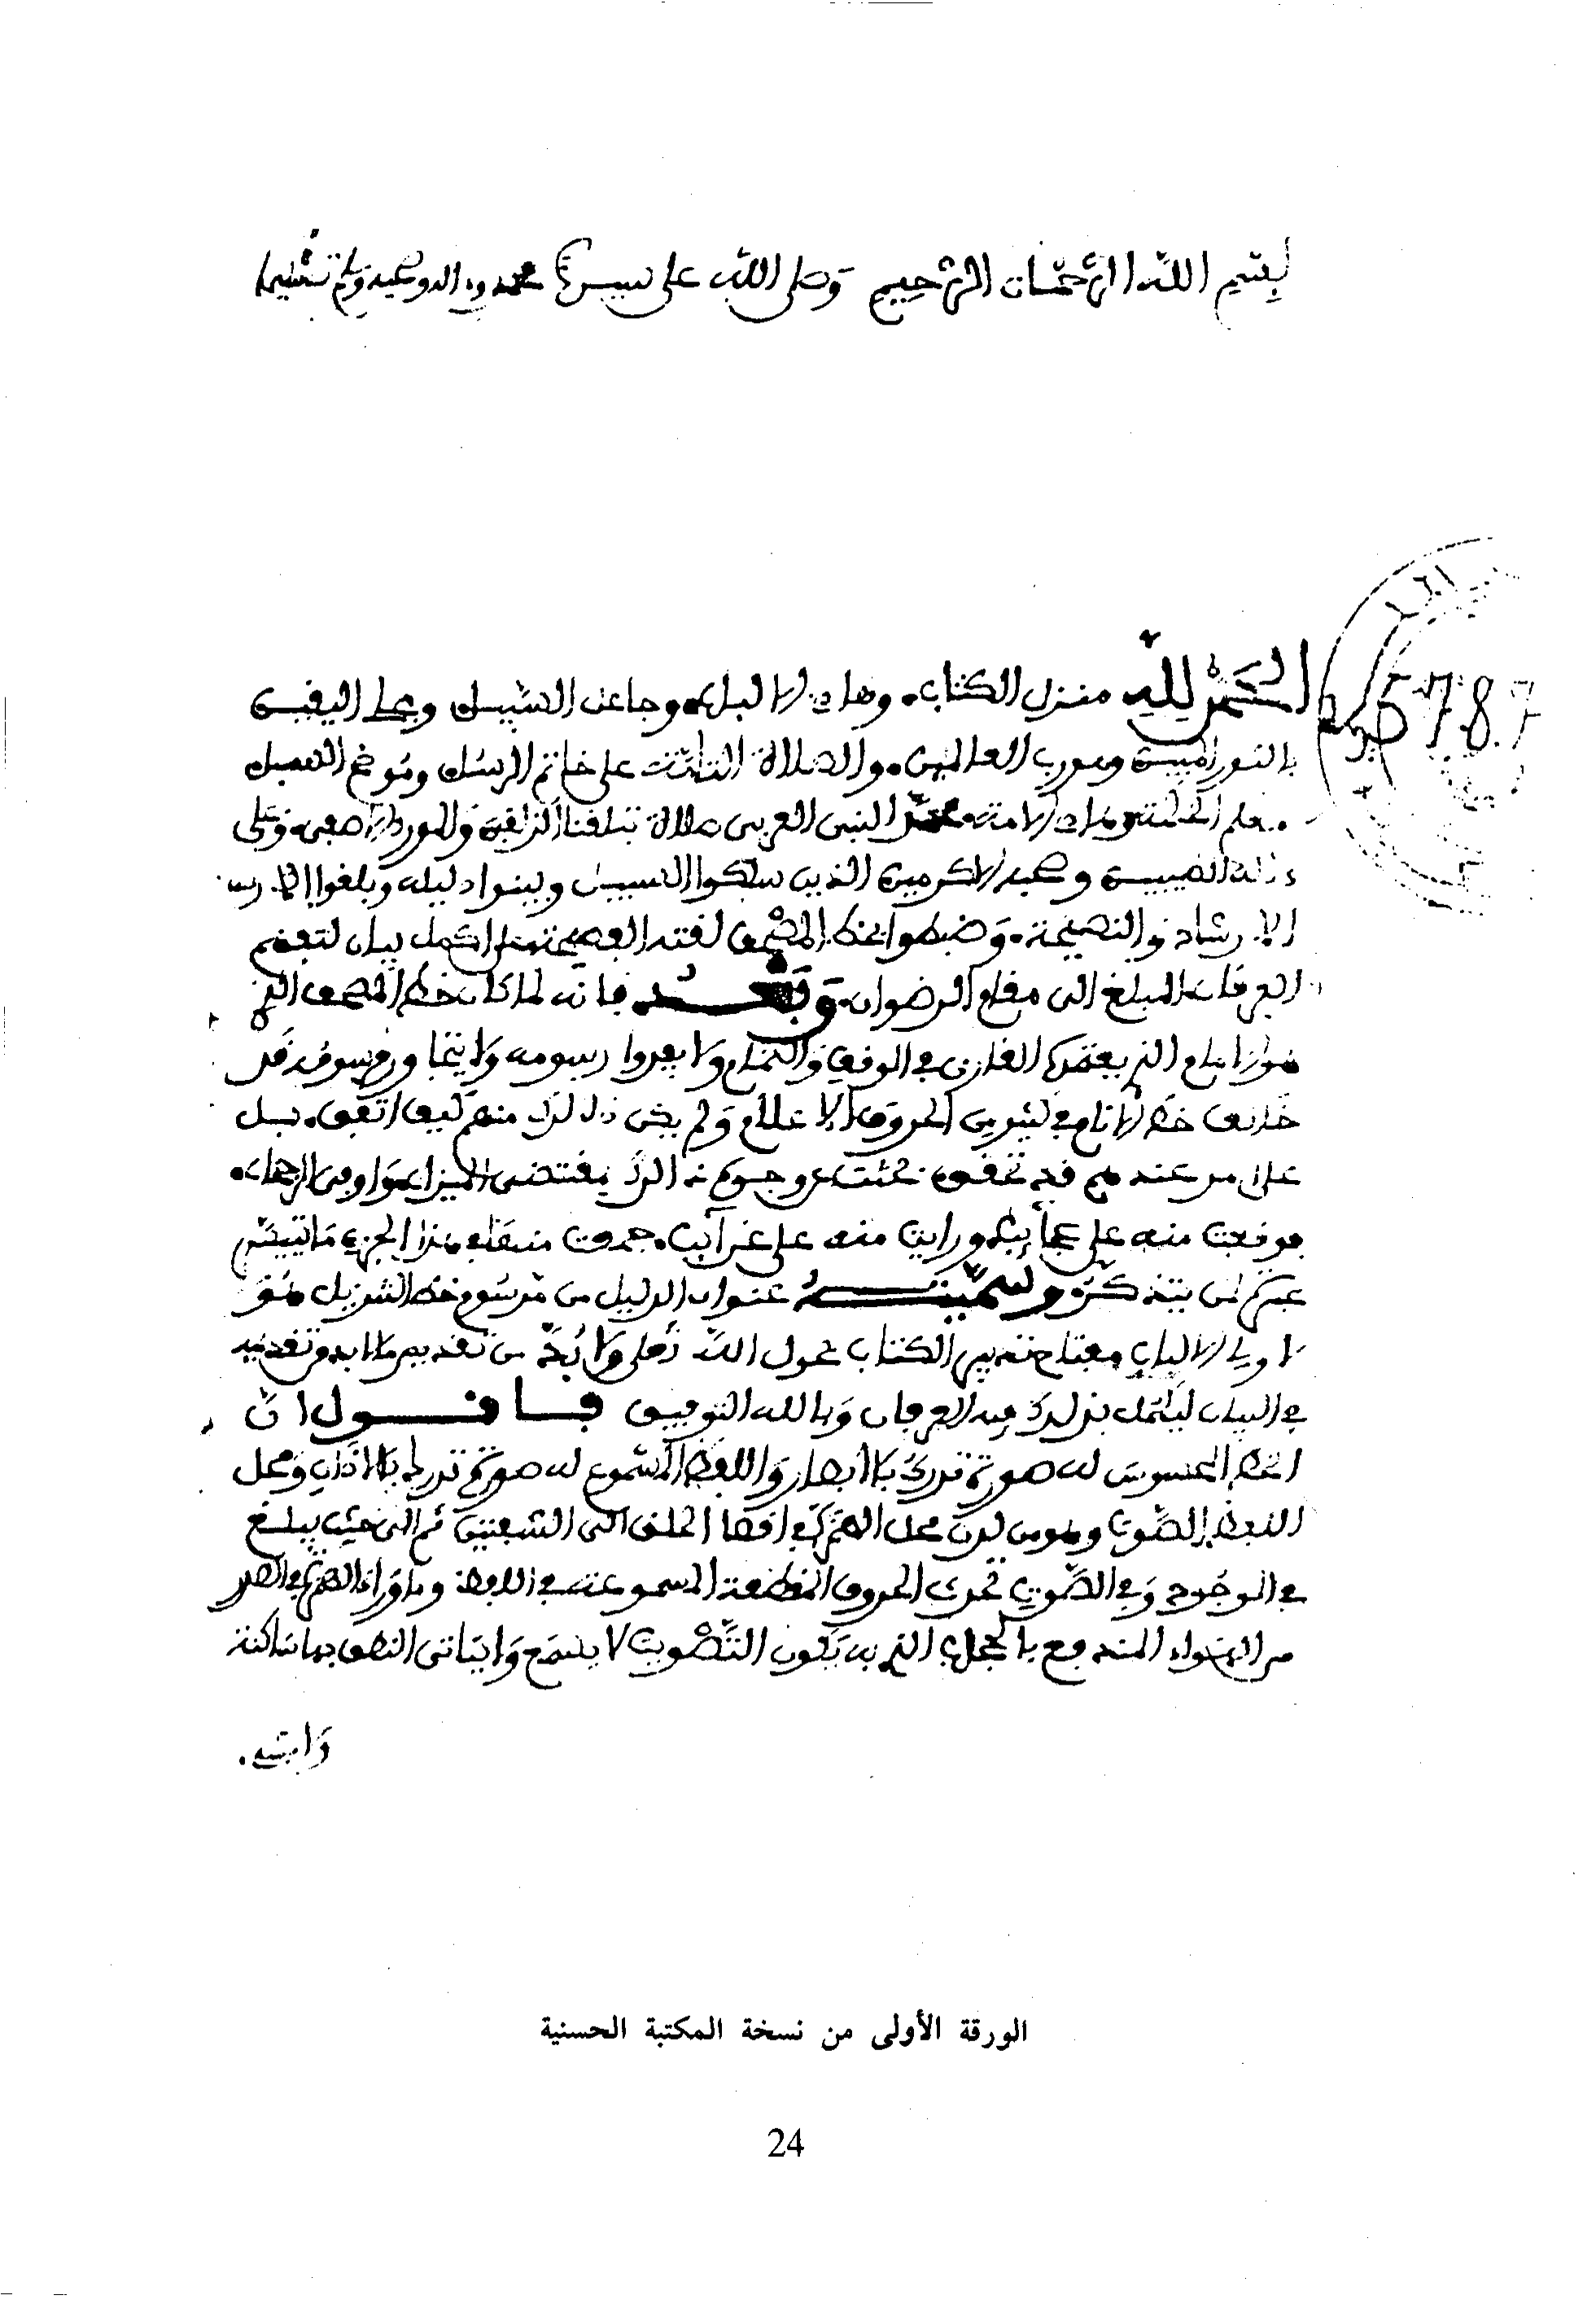 بسم الله الرحمان الرحيم وصلى الله على سيدنا محمد واله وصحبه وسلم تسليما
5787
الحمد لله منزل الكتاب وهادي الالباب وجاعل السبيل ومحل اليقين
بالنور المبين ورب العالمين والصلاة الثابتة على خاتم الرسل وموضح السبيل
معلم الحكمة وهادي الامة محمد النبي العربي صلاة تبلغنا الزلفى والمورد الاصفى وعلى
ءاله الطيبين وصحبه الاكرمين الذين سلكوا السبيل وبينوا دليله وبلغوا
الارشاد والنصيحة وضبطوا بخط المصحف لغته الفصيحة على اكمل بيان لتفهم
الفرقان المبلغ الى مقام الرضوان وبعد فانه لما كان خط المصحف الذي
هو الامام الذي يعتمده القارئ في الوقف والتمام ولا يعدوا رسومه ولا يتجاوز مرسومه قد
خالف خط الانام في كثير من الحروف والاعلام ولم يكن ذلك منهم كيف اتفق بل
على امر عندهم قد تحقق بحثت عن وجوه ذلك بمقتضى الميزان واوفى الرجحان
فوقفت منه على عجائب ورايت منه على غرائب جمعت منها في هذا الجزء ما تيسر
عبرة لمن يتذكر وسميته عنوان الدليل من مرسوم خط التنزيل هو
لاولي الالباب مفتاح تدبر الكتاب بحول الله تعلى ولا بد من تقديم ما لا بد من تقديمه
في البيان ليكمل بذلك فيه العرفان وبالله التوفيق فاقول ان
الخط المحسوس له صورة تدرك بالابصار واللفظ المسموع له صورة تدرك بالاذان ومحل
اللفظ الصوت وهو من لدن محل الهمزة في اقصا الحلق الى الشفتين ثم الى حيث يبلغ
في الوجود وفي الصوت تحدث الحروف المقطعة المسموعة في اللفظ وما وراء الهمزة في الصدر
من الهواء المندفع بالحجاب الذي به يكون التصويت لا يسمع ولا يتاتى النطق بها ساكنة
وابتد
الورقة الأولى من نسخة المكتبة الحسنية
24